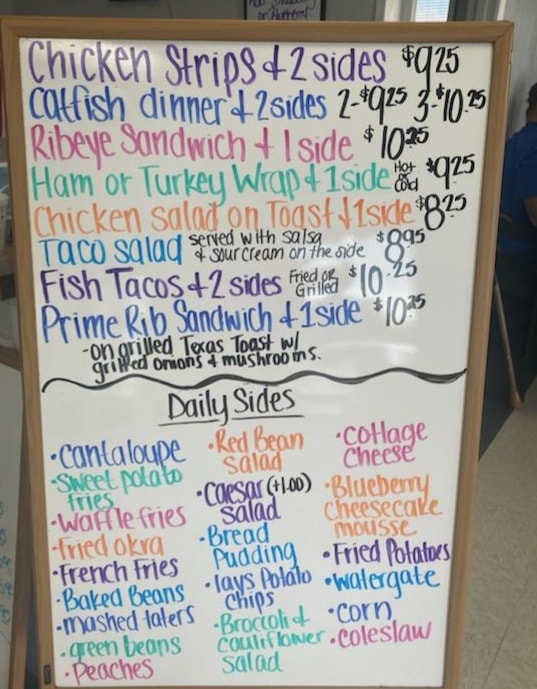 or Blueberry
Chicken Strips + 2 sides $9.25
Catfish dinner + 2 sides 2-$9.25 3-$10.25
Ribeye Sandwich + 1 side $10.25
Ham or Turkey Wrap + 1 side Hot or Cold $9.25
Chicken salad on Toast + 1 side $8.25
Taco salad served with salsa + sour cream on the side $8.95
Fish Tacos + 2 sides Fried or Grilled $10.25
Prime Rib Sandwich + 1 side $10.25
-on grilled Texas Toast w/
grilled onions + mushrooms.
Daily Sides
•Cantaloupe
•Sweet potato
fries
•Waffle fries
•Fried okra
•French Fries
•Baked Beans
•mashed taters
•green beans
•Peaches
•Red Bean
Salad
•Caesar (+1.00)
Salad
•Bread
Pudding
•lays Potato
Chips
•Broccoli +
cauliflower
salad
•Cottage
Cheese
•Blueberry
cheesecake
mousse
•Fried Potatoes
•watergate
•corn
•coleslaw